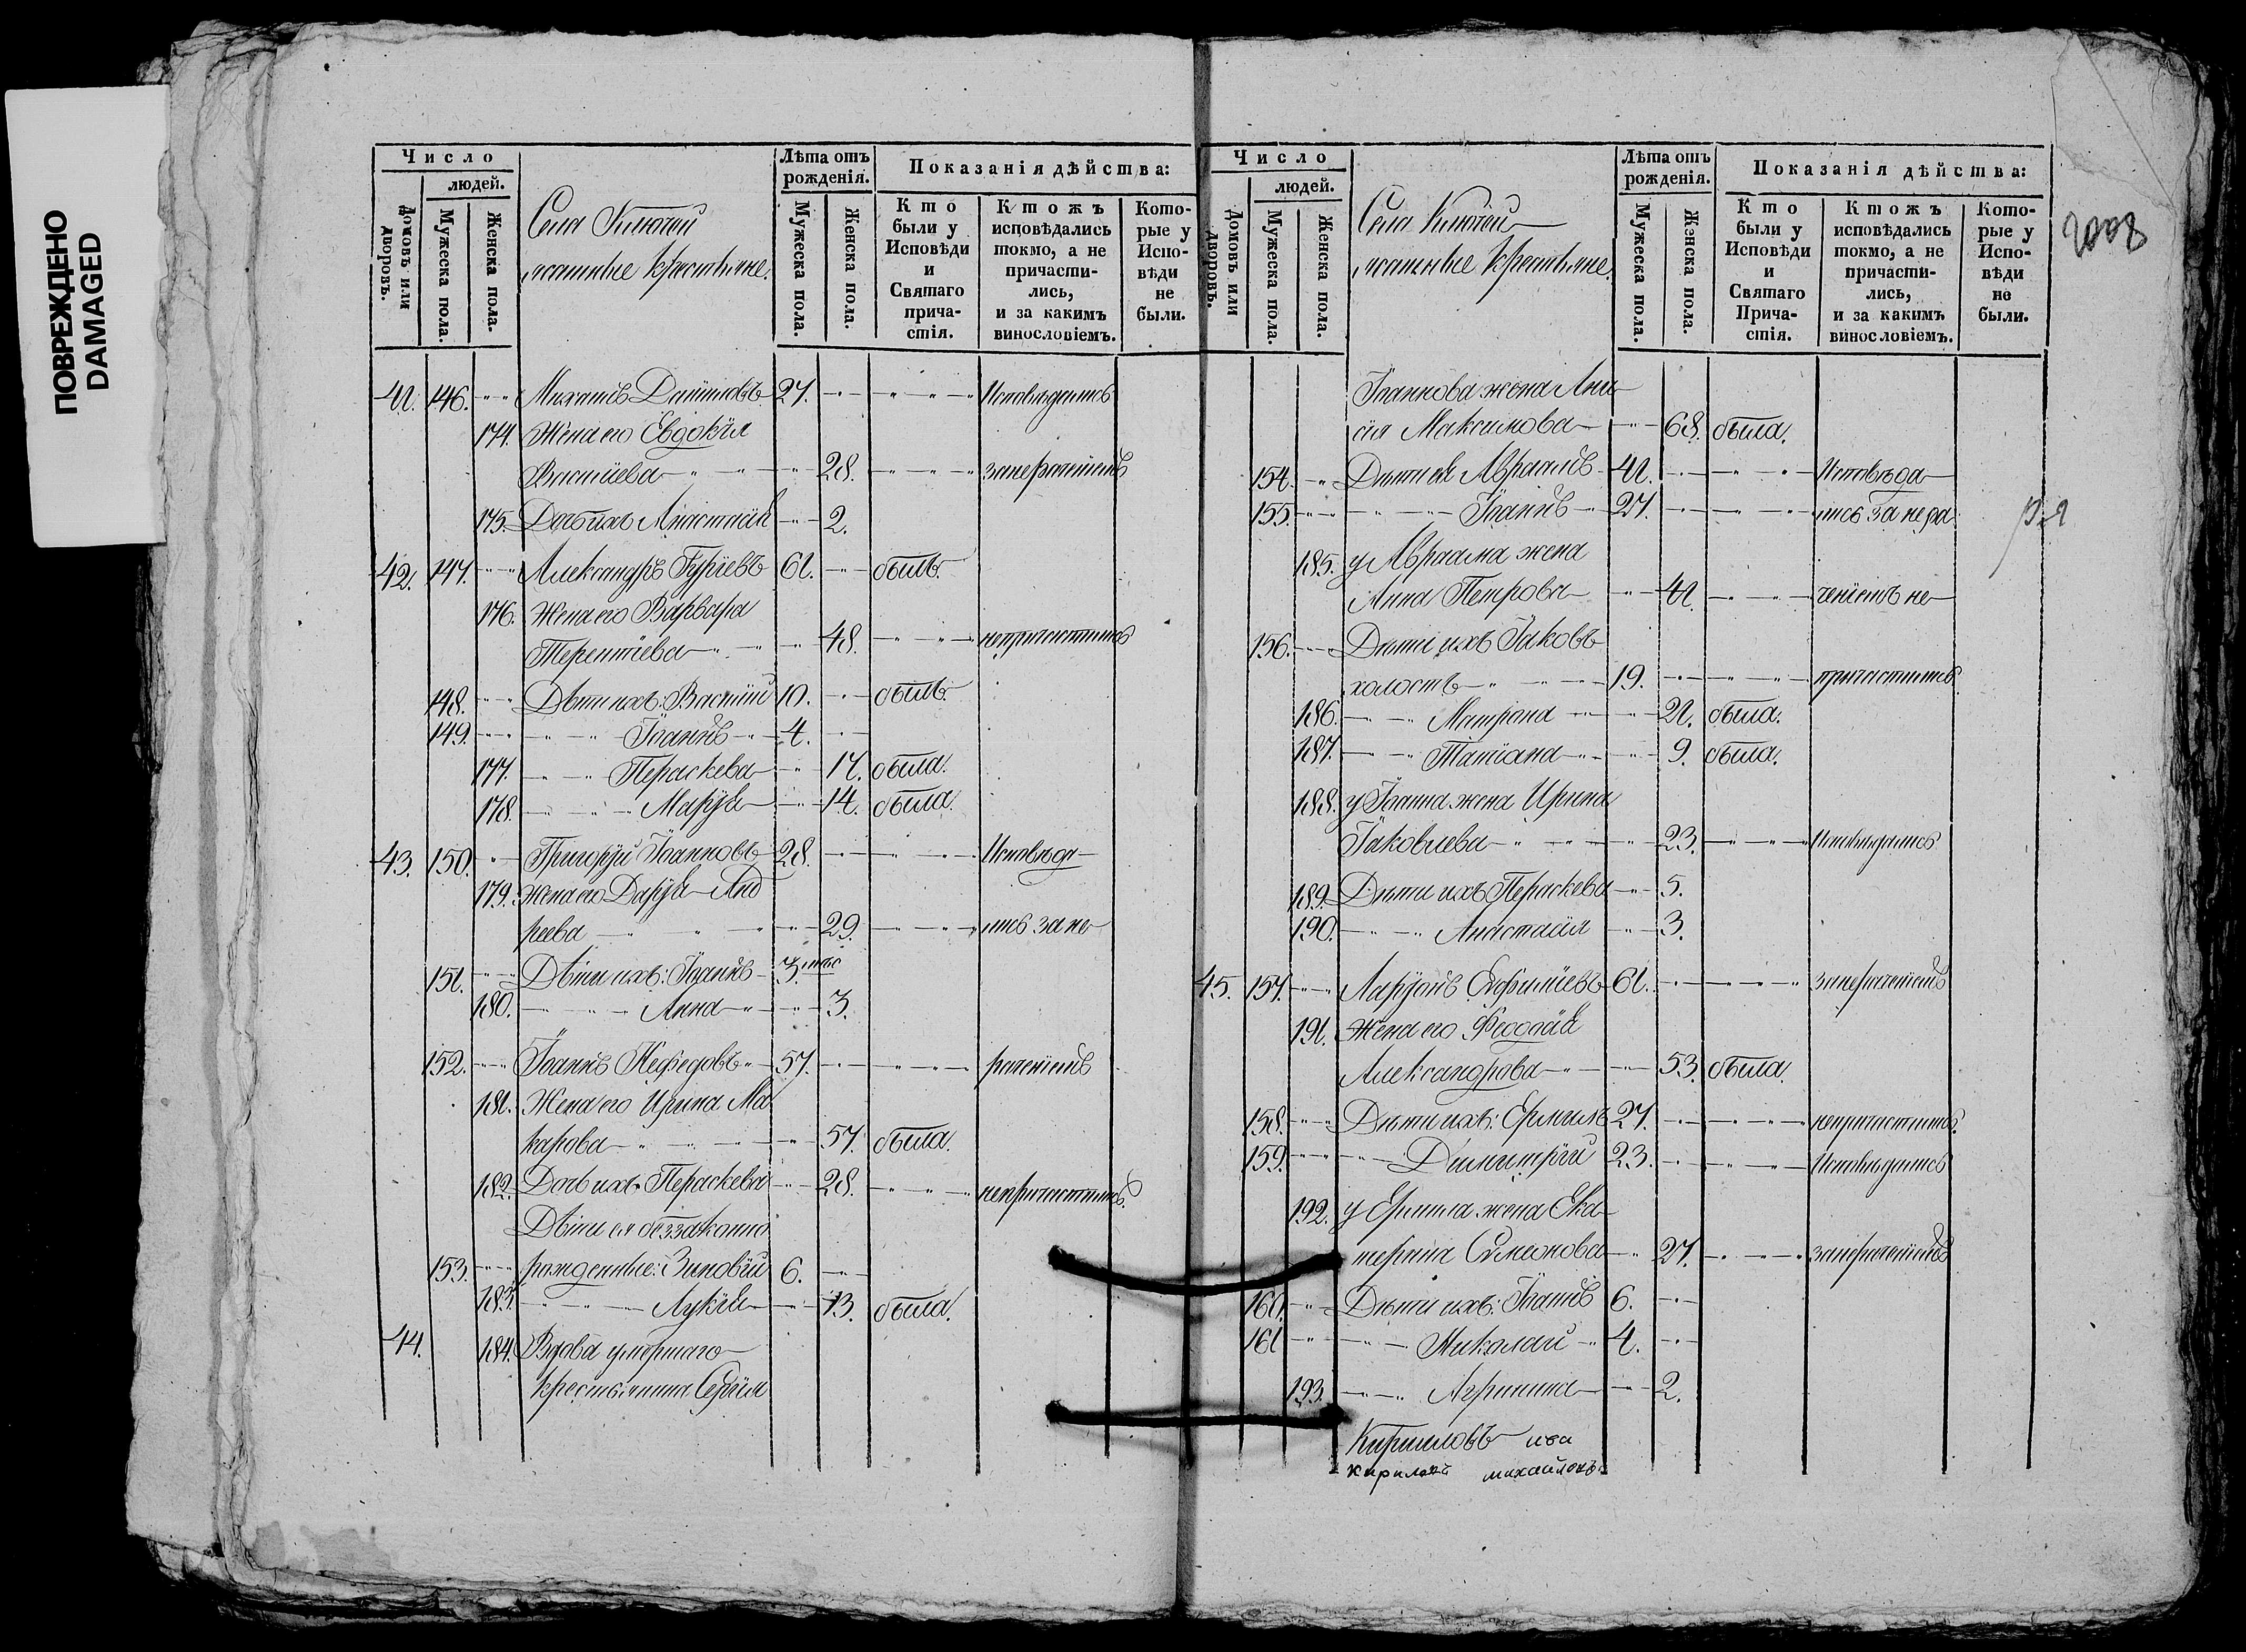 ПОВРЕЖДЕНО
DAMAGED
Число
людей.
Домовъ или дворовъ.
Мужеска пола.
Женска пола.
Села Ключей
ясашные Крестьяне.
Лѣта отъ рожденія.
Мужеска пола.
Женска пола.
Показанія дѣйства:
Кто были у Исповѣди и Святаго прича-стія.
Ктожъ исповѣдались токмо, а не причасти-лись, и за какимъ винословіемъ.
Кото-рые у Испо-вѣди не были.
41. 146. Михаилъ Даниловъ 27. Исповѣдались
174. Жена его Евдокія
Василіева 28. занераченіемъ
175. Дочь ихъ Анастасія 2.
42. 147. Александръ Гурьевъ 61. былъ.
176. Жена его Варвара
Терентіева 48. непричастились
148. Дѣти ихъ: Василій 10. былъ
149. Іоаннъ 4.
177. Параскева 17. была.
178. Марѳа 14. была.
43. 150. Григорій Іоанновъ 28. Исповѣда-
179. Жена его Дарія Анд
реева 29. лись за не-
151. Дѣти ихъ: Іоаннъ 3. мѣс
180. Анна 3.
152. Іоаннъ Нефедовъ 57. раченіемъ
181. Жена его Ирина Ма
карова 57. была.
182. Дочь ихъ Параскева 28. непричастились.
Дѣти ея беззаконно
153. рожденные: Зиновій 6.
183. Лукія 13. была.
44. 184. Вдова умершаго
крестьянина Сергія
Число
людей.
Домовъ или дворовъ.
Мужеска пола.
Женска пола.
Села Ключей
ясашные Крестьяне.
Лѣта отъ рожденія.
Мужеска пола.
Женска пола.
Показанія дѣйства:
Кто были у Исповѣди и Святаго Прича-стія.
Ктожъ исповѣдались токмо, а не причасти-лись, и за какимъ винословіемъ.
Кото-рые у Испо-вѣди не были.
Іоаннова жена Ани-
сія Максимова 68. была.
154. Дѣти ея Авраамъ 41. Исповѣда-
155. Іоаннъ 27. лись за нера
185. у Авраама жена
Анна Петрова 41. ченіемъ не-
156. Дѣти ихъ Іаковъ
холостъ 19. причастились.
186. Матрона 21. была.
187. Татіана 9. была.
188. у Іоанна жена Ирина
Іаковлева 23. Исповѣдались
189. Дѣти ихъ Параскева 5.
190. Анастасія 3.
45. 157. Ларіонъ Евфиміевъ 61. занераченіемъ
191. Жена его Феодосія
Александрова 53. была.
158. Дѣти ихъ: Ермилъ 27. непричастились.
159. Димитрій 23. Исповѣдались
192. у Ермила жена Ека-
терина Симеонова 27. занераченіемъ
160. Дѣти ихъ: Іоаннъ 6.
161 Николай 4.
193. Агрипина 2.
Кирилловъ
михайловъ